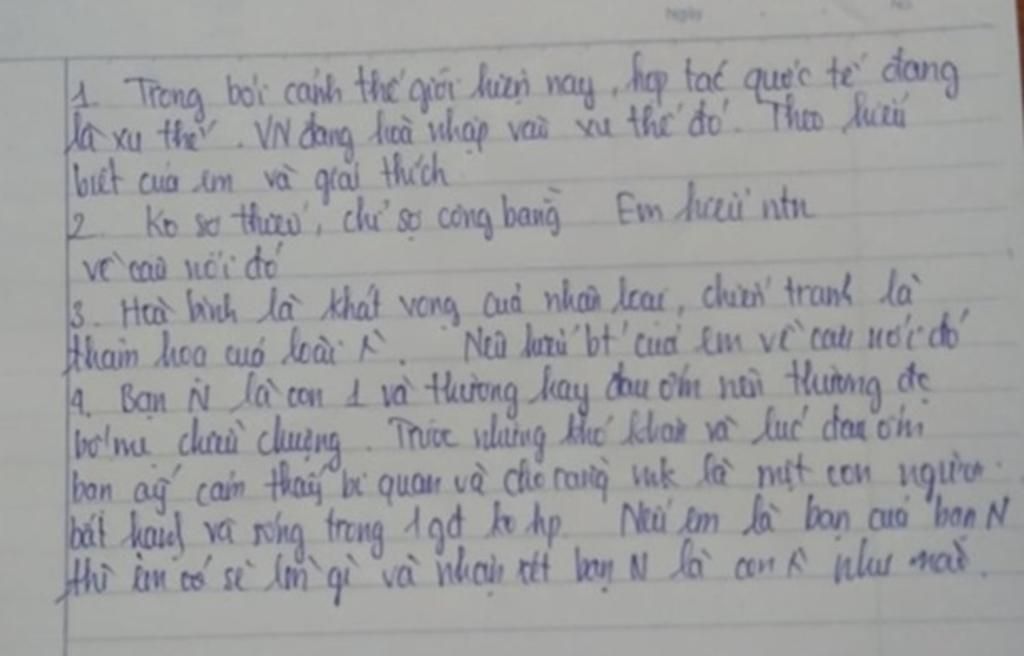 Ngày
No
1. Trong bối cảnh thế giới hiện nay, hợp tác quốc tế đang
là xu thế. VN đang hoà nhập vào xu thế đó. Theo hiểu
biết của em và giải thích
2. Ko sợ thiếu, chỉ sợ công bằng Em hiểu ntn
về câu nói đó
3. Hoà bình là khát vọng của nhân loại, chiến tranh là
thảm hoạ của loài Nêu hiểu bt của em về câu nói đó
4. Bạn N là con 1 và thường hay đau ốm nên thường đc
bố mẹ chiều chuộng. Trước những khó khăn và lúc đau ốm
bạn ấy cảm thấy bi quan và cho rằng mk là một con người
bất hạnh và sống trong 1 gđ ko hp. Nếu em là bạn của bạn N
thì em có sẽ làm gì và nhận xét bạn N là con như nào.